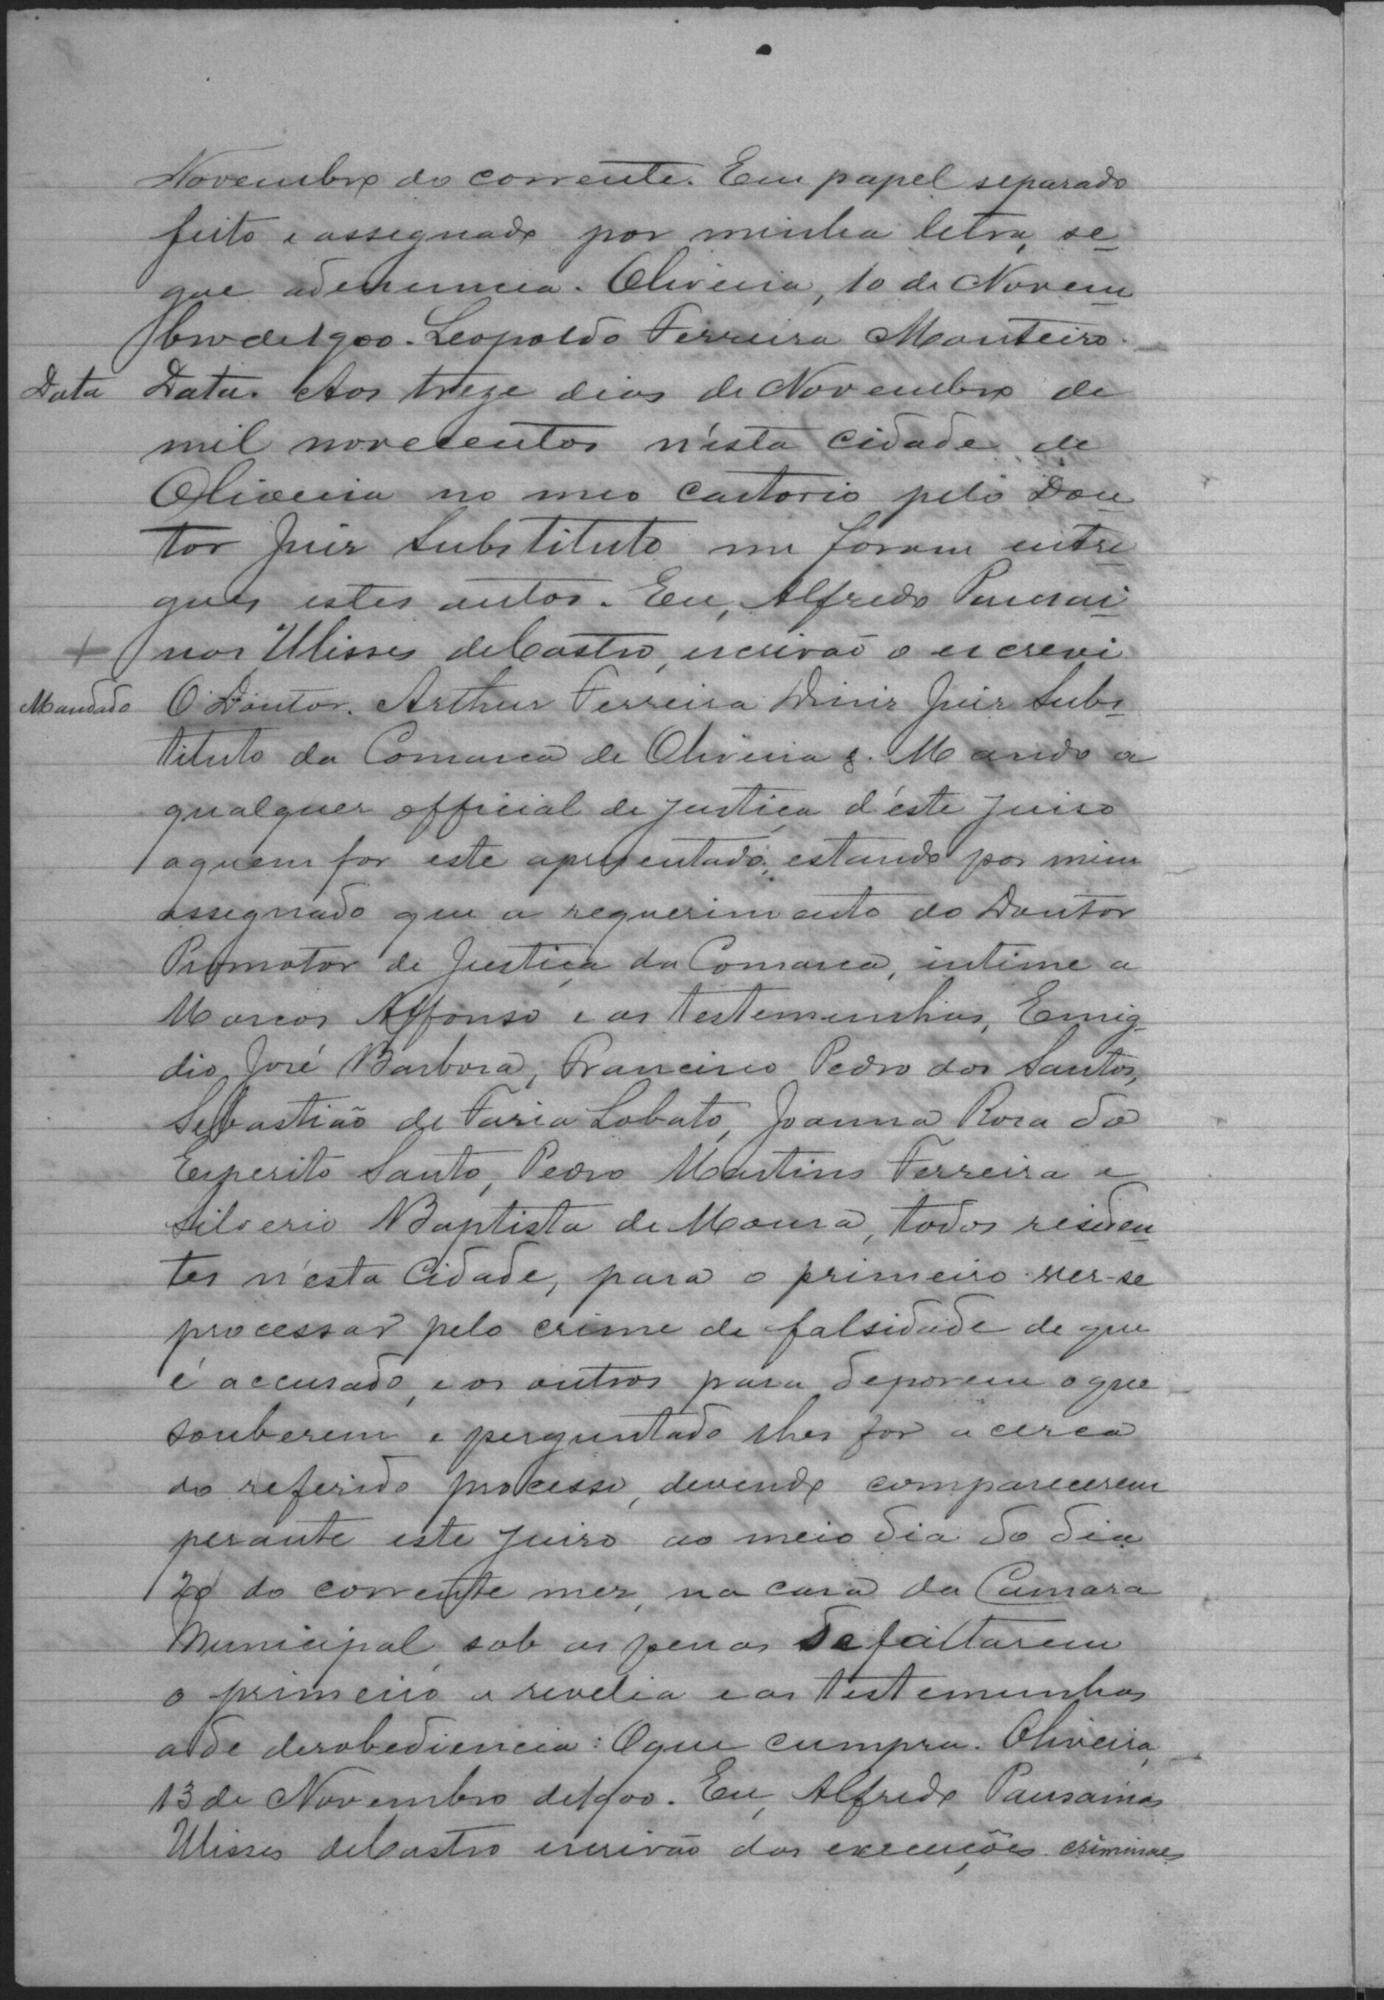 Novembro do corrente. Em papel separado
feito e assegnado por minha letra, se-
gue adenuncia. Oliveira, 10 de Novem-
bro de 1900. Leopoldo Ferreira Monteiro.
Data Data. Aos treze dias de Novembro de
mil novecentos n'esta cidade de
Oliveira no meo cartorio pelo Dou-
tor Juiz Substituto me foram entre-
gues estes autos. Eu, Alfredo Pausai-
nas Ulisses de Castro, escrivaõ o escrevi
Mandado O Doutor. Arthur Ferreira Diniz Juiz Subs-
tituto da Comarca de Oliveira &. Mando a
qualquer official de justiça d'este juiso
aquem for este apresentado, estando por mim
assegnado que a requerimento do Doutor
Promotor de Justiça da Comarca, intime a
Marcos Affonso e as testemunhas, Emig-
dio José Barbosa, Francisco Pedro dos Santos,
Sebastião de Faria Lobato, Joanna Rosa do
Esperito Santo, Pedro Martins Ferreira e
Silverio Baptista de Moura, todos residen-
tes n'esta Cidade, para o primeiro ver-se
processar pelo crime de falsidade de que
é accusado, e os outros para deporem o que
souberem e perguntado lhes for a cerca
do referido processo, devendo comparecerem
perante este juizo ao meio dia do dia
20 do corrente mez, na casa da Camara
Municipal, sob as penas de faltarem
o primeiro a revelia e as testemunhas
a de desobediencia: O que cumpra. Oliveira,
13 de Novembro de 1900. Eu, Alfredo Pausainas
Ulisses de Castro escrivão das execuções criminaes